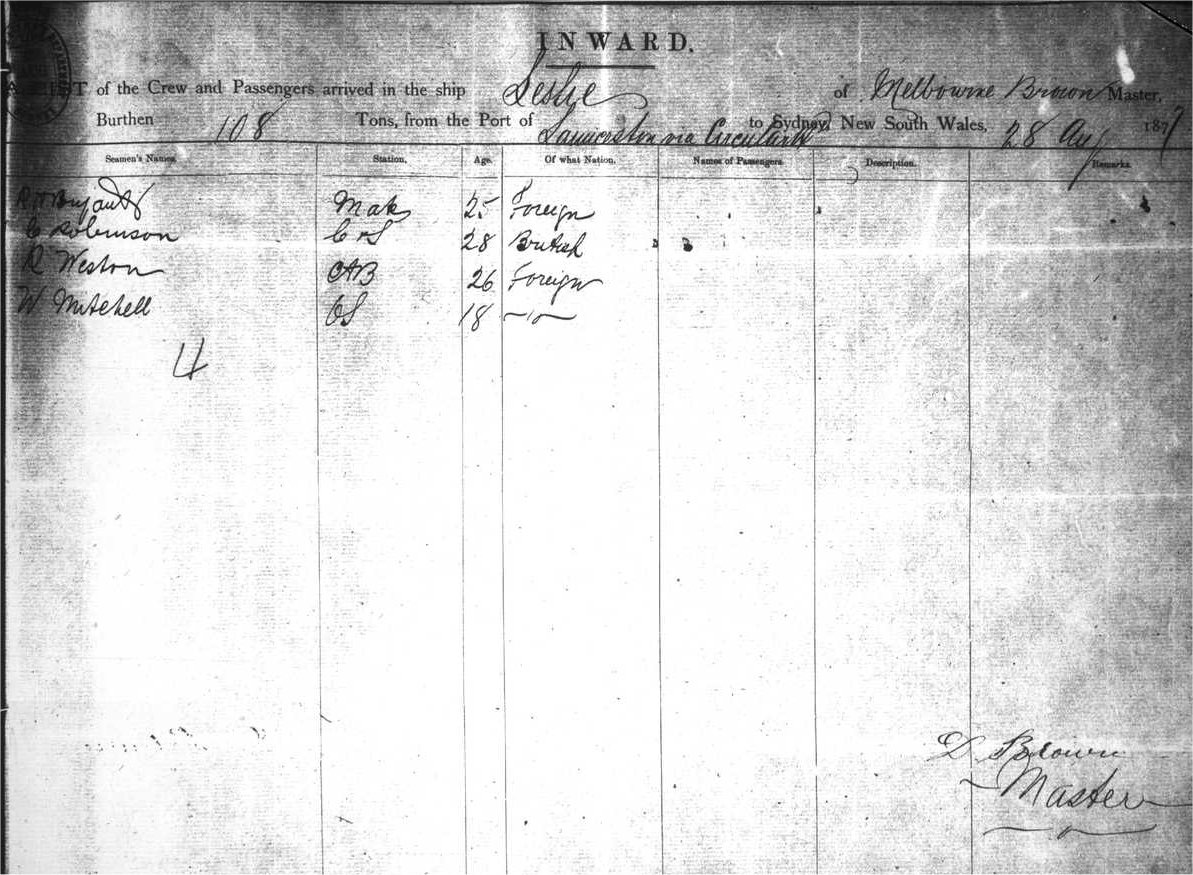 INWARD.
LIST of the Crew and Passengers arrived in the ship Leslie of Melbourne Brown Master,
Burthen 108 Tons, from the Port of Launceston via to Sydney, New South Wales, 28 Aug 187
Seamen's Names. Station. Age. Of what Nation. Names of Passengers. Description. Remarks.
Mate 25 Foreign
C Robinson C & S 28 British
R Weston AB 26 Foreign
W Mitchell OS 18 —"—
4
D Brown
Master